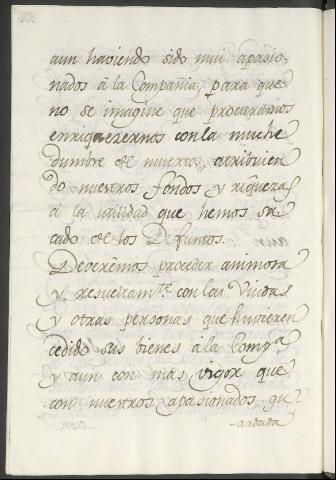 aun haviendo sido mui apasio-
nados â la Compañia, para que
no se imagine que procuramos
enriquezernos con la muche
dumbre de muertos, atribuien
do nuestros fondos y riquezas
â la utilidad que hemos sa
cado de los Difuntos.
Deverêmos proceder animosa
y resueltamte. con las Viudas
y otras personas que huvieren
cedido sus bienes â la Compa.
y aun con mas vigor que
con nuestros apasionados, gu-
-ardada